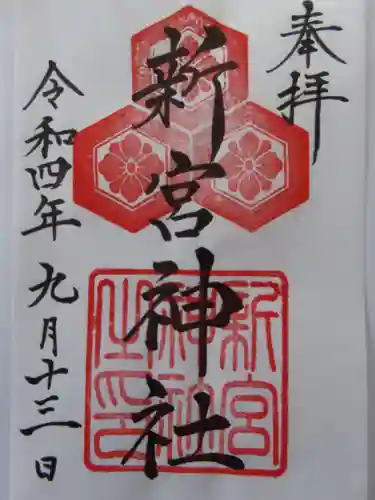 奉拝
新宮神社
新宮神社之印
令和四年九月十三日